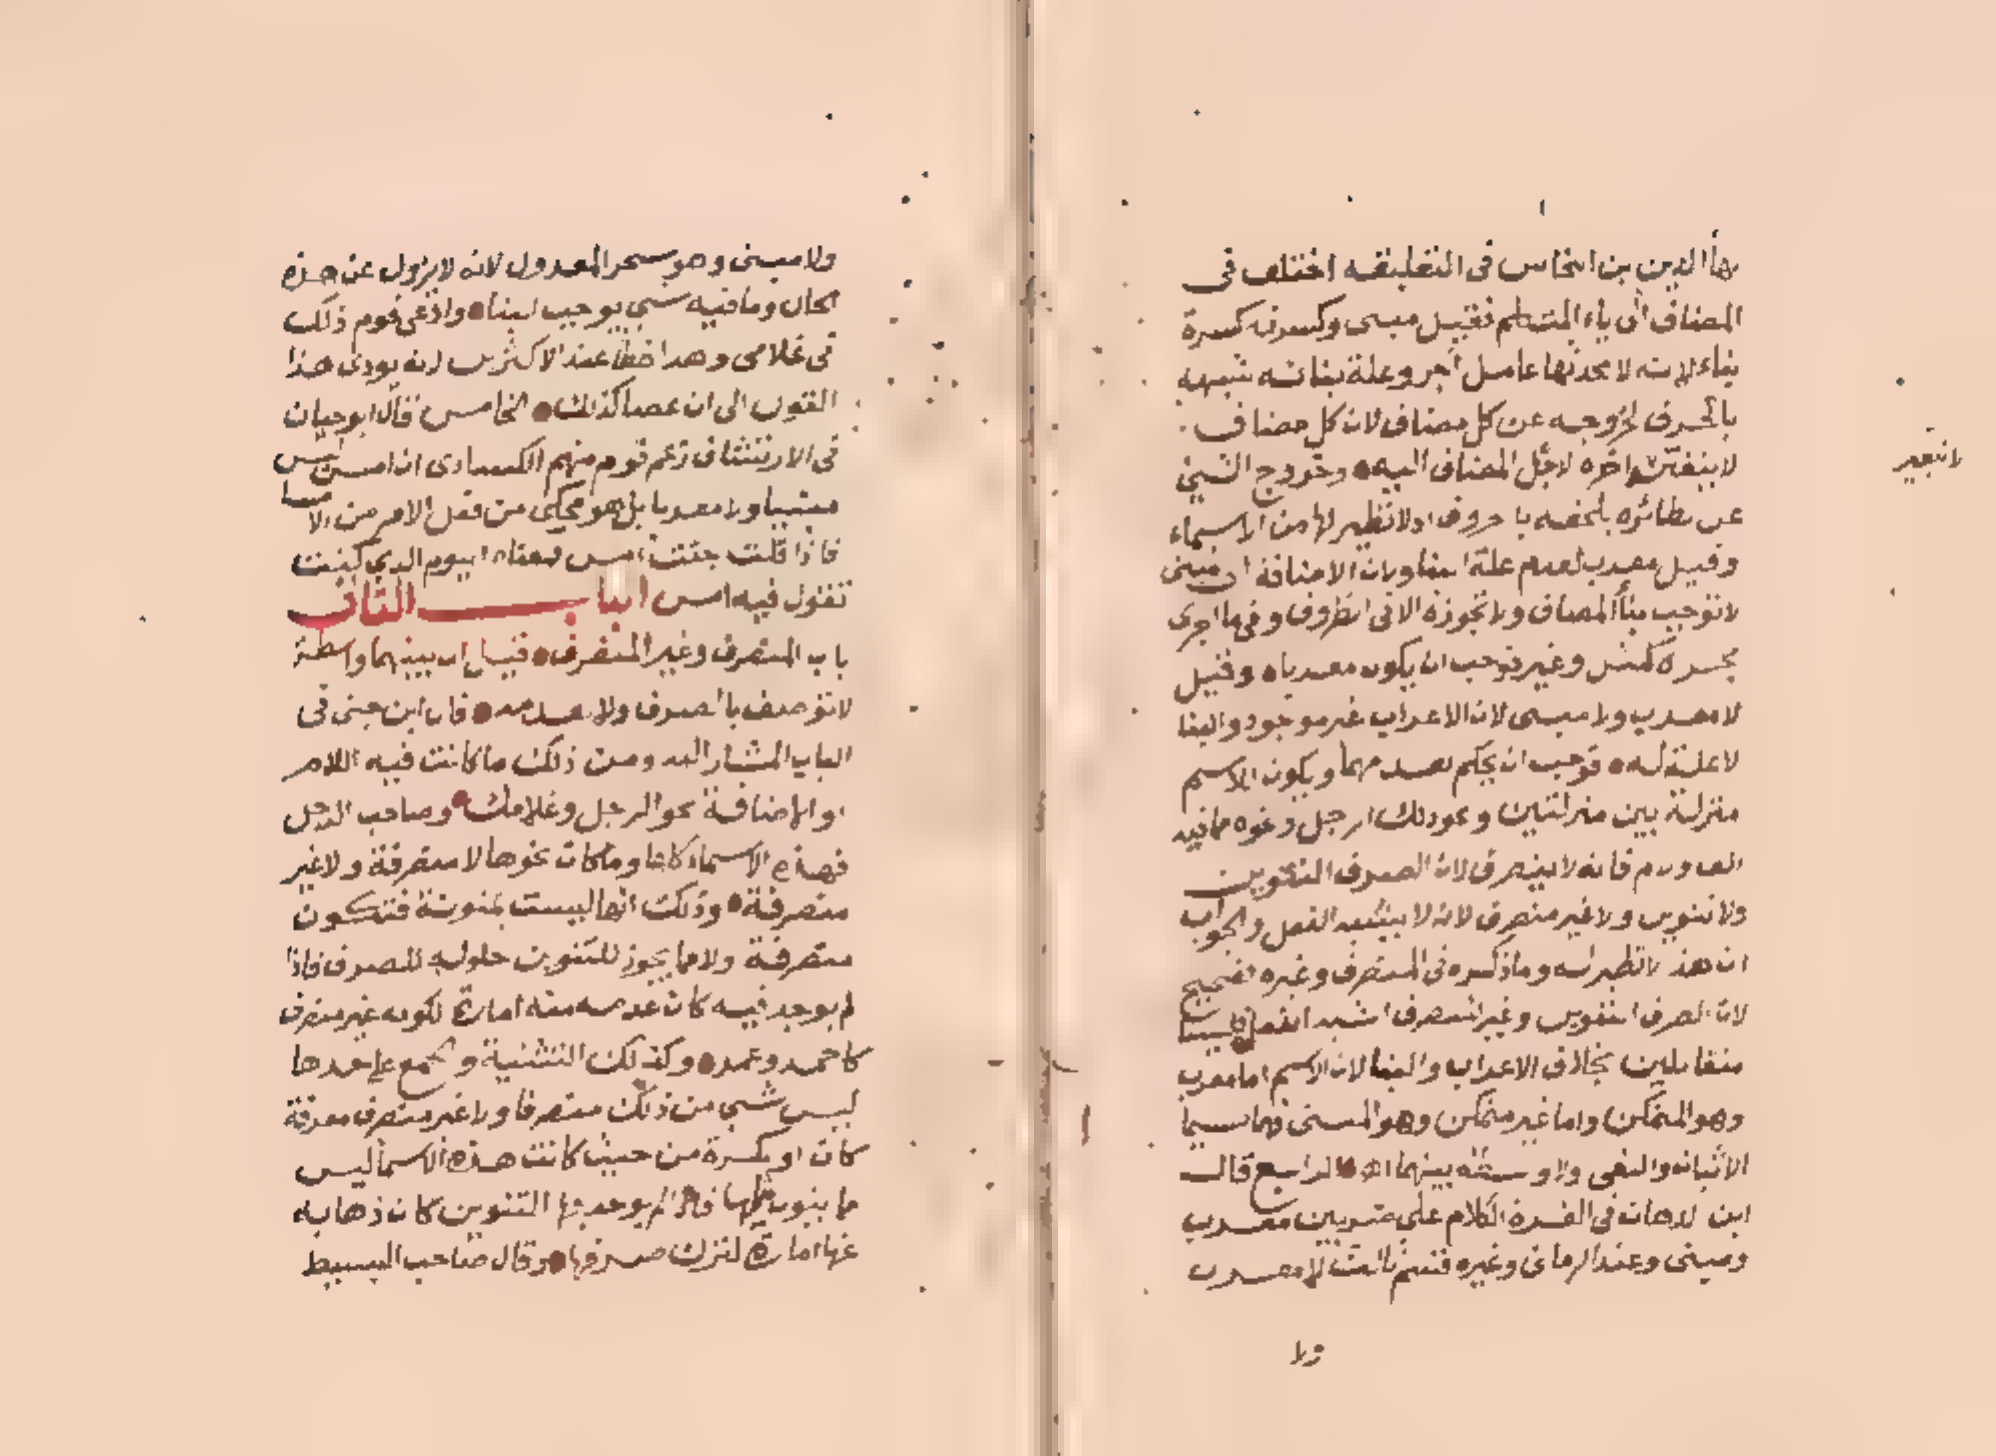 بهاء الدين بن النحاس في التعليقه اختلف في
المضاف الى ياء المتكلم فقيل مبنى وكسرته كسرة
بناء لانه لا يحدثها عامل الجر وعلة بنائه شبهه
بالحرف لخروجه عن كل مضاف لان كل مضاف
لا يتغير اخره لاجل المضاف اليه وخروج الشي
عن نظائره يلحقه بالحروف اذ لا نظير لها من الاسماء
وقيل معرب لعدم علة البناء وبان الاضافة الى مبنى
لا توجب بناء المضاف ولا تجوزه الا في الظروف وفيما اجرى
مجراه كمثل وغير فوجب ان يكون معربا وقيل
لا معرب ولا مبنى لان الاعراب غير موجود والبنا
لا علة له فوجب ان يحكم بعدمهما ويكون للاسم
منزلة بين منزلتين ونحو ذلك الرجل ونحوه مما فيه
الف ولام فانه لا ينصرف لان الصرف التنوين
ولا تنوين ولا غير منصرف لانه لا يشبه الفعل والجواب
ان هذا لا نظير له وما ذكره في المنصرف وغيره صحيح
لان الصرف التنوين وغير المنصرف اشبه الفعل فليسا
متقابلين بخلاف الاعراب والبنا لان الاسم اما معرب
وهو المتمكن واما غير متمكن وهو المبنى فهما سيما
الاثبات والنفى ولا وسطه بينهما اه الرابع قال
ابن الدهان في الغرة الكلام على ضربين معرب
ومبنى وعند الرماني وغيره قسم ثالث لا معرب
ولا
لا يتغير
ولا مبنى وهو سحر المعدول لانه لا يزول عن هذه
الحال وما فيه شي يوجب البناء وادعى قوم ذلك
في غلامى وهذا خطا عند الاكثرين لانه يودى هذا
القول الى ان عصا كذلك الخامس قال ابو حيان
في الارتشاف زعم قوم منهم الكسائى ان امس ليس
مبنيا ولا معربا بل هو محكى من فعل الامر من الامسا
فاذا قلت جئت امس فمعناه اليوم الذي كنت
تقول فيه امس الباب الثانى
باب المنصرف وغير المنصرف قيل ان بينهما واسطة
لا توصف بالصرف ولا بعدمه قال ابن جنى في
الباب المشار اليه ومن ذلك ما كانت فيه اللام
او الاضافة نحو الرجل وغلامك وصاحب الرجل
فهذه الاسماء كلها وما كان نحوها لا منصرفة ولا غير
منصرفة وذلك انها ليست بمنونة فتكون
منصرفة ولا مما يجوز للتنوين حلوله للصرف فاذا
لم يوجد فيه كان عدمه منه امارة لكونه غير منصرف
كاحمد وعمر وكذلك التثنية والجمع على حدها
ليس شي من ذلك منصرفا ولا غير منصرف معرفة
كان او نكرة من حيث كانت هذه الاسما ليس
مما ينون مثلها فاذا لم يوجد فيها التنوين كان ذهابه
عنها امارة لترك صرفها وقال صاحب البسيط